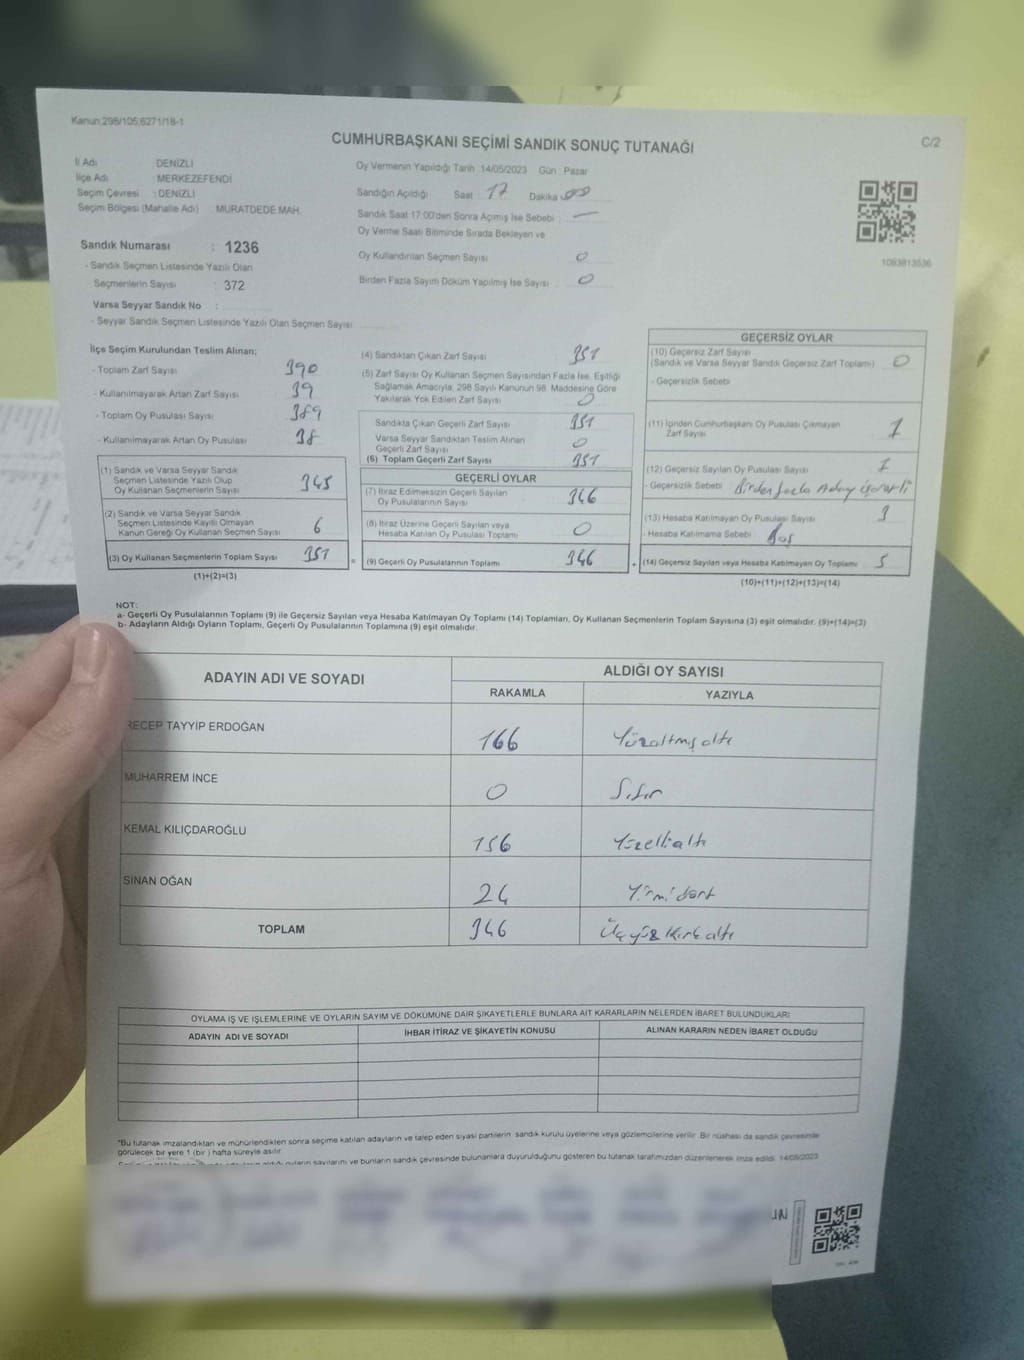 Kanun;298/105;6271/18-1
CUMHURBAŞKANI SEÇİMİ SANDIK SONUÇ TUTANAĞI
C/2
İl Adı : DENİZLİ
İlçe Adı : MERKEZEFENDİ
Seçim Çevresi : DENİZLİ
Seçim Bölgesi (Mahalle Adı) : MURATDEDE MAH.
Oy Vermenin Yapıldığı Tarih 14/05/2023 Gün : Pazar
Sandığın Açıldığı Saat : 17 Dakika 00
Sandık Saat 17.00'den Sonra Açımış İse Sebebi : —
Oy Verme Saati Bitiminde Sırada Bekleyen ve
Oy Kullandırılan Seçmen Sayısı 0
Birden Fazla Sayım Döküm Yapılmış İse Sayısı : 0
1093813536
Sandık Numarası : 1236
- Sandık Seçmen Listesinde Yazılı Olan
Seçmenlerin Sayısı : 372
Varsa Seyyar Sandık No :
- Seyyar Sandık Seçmen Listesinde Yazılı Olan Seçmen Sayısı
İlçe Seçim Kurulundan Teslim Alınan;
- Toplam Zarf Sayısı 390
- Kullanılmayarak Artan Zarf Sayısı 39
- Toplam Oy Pusulası Sayısı 389
- Kullanılmayarak Artan Oy Pusulası 38
(1) Sandık ve Varsa Seyyar Sandık
Seçmen Listesinde Yazılı Olup
Oy Kullanan Seçmenlerin Sayısı 345
(2) Sandık ve Varsa Seyyar Sandık
Seçmen Listesinde Kayıtlı Olmayan
Kanun Gereği Oy Kullanan Seçmen Sayısı 6
(3) Oy Kullanan Seçmenlerin Toplam Sayısı 351
(1)+(2)=(3)
(4) Sandıktan Çıkan Zarf Sayısı 351
(5) Zarf Sayısı Oy Kullanan Seçmen Sayısından Fazla İse, Eşitliği
Sağlamak Amacıyla, 298 Sayılı Kanunun 98. Maddesine Göre
Yakılarak Yok Edilen Zarf Sayısı 0
Sandıkta Çıkan Geçerli Zarf Sayısı 351
Varsa Seyyar Sandıktan Teslim Alınan
Geçerli Zarf Sayısı 0
(6) Toplam Geçerli Zarf Sayısı 351
GEÇERLİ OYLAR
(7) İtiraz Edilmeksizin Geçerli Sayılan
Oy Pusulalarının Sayısı 346
(8) İtiraz Üzerine Geçerli Sayılan veya
Hesaba Katılan Oy Pusulası Toplamı 0
= (9) Geçerli Oy Pusulalarının Toplamı 346
GEÇERSİZ OYLAR
(10) Geçersiz Zarf Sayısı
(Sandık ve Varsa Seyyar Sandık Geçersiz Zarf Toplamı) 0
- Geçersizlik Sebebi
(11) İçinden Cumhurbaşkanı Oy Pusulası Çıkmayan
Zarf Sayısı 1
(12) Geçersiz Sayılan Oy Pusulası Sayısı 1
- Geçersizlik Sebebi Birden fazla Aday işareti
(13) Hesaba Katılmayan Oy Pusulası Sayısı 3
- Hesaba Katılmama Sebebi Boş
+ (14) Geçersiz Sayılan veya Hesaba Katılmayan Oy Toplamı 5
(10)+(11)+(12)+(13)=(14)
NOT:
a- Geçerli Oy Pusulalarının Toplamı (9) ile Geçersiz Sayılan veya Hesaba Katılmayan Oy Toplamı (14) Toplamları, Oy Kullanan Seçmenlerin Toplam Sayısına (3) eşit olmalıdır. (9)+(14)=(3)
b- Adayların Aldığı Oyların Toplamı, Geçerli Oy Pusulalarının Toplamına (9) eşit olmalıdır.
ADAYIN ADI VE SOYADI
ALDIĞI OY SAYISI
RAKAMLA YAZIYLA
RECEP TAYYİP ERDOĞAN 166 Yüzaltmışaltı
MUHARREM İNCE 0 Sıfır
KEMAL KILIÇDAROĞLU 156 Yüzellialtı
SİNAN OĞAN 24 Yirmidört
TOPLAM 346 Üçyüzkırkaltı
OYLAMA İŞ VE İŞLEMLERİNE VE OYLARIN SAYIM VE DÖKÜMÜNE DAİR ŞİKAYETLERLE BUNLARA AİT KARARLARIN NELERDEN İBARET BULUNDUKLARI
ADAYIN ADI VE SOYADI İHBAR İTİRAZ VE ŞİKAYETİN KONUSU ALINAN KARARIN NEDEN İBARET OLDUĞU
*Bu tutanak imzalandıktan ve mühürlendikten sonra seçime katılan adayların ve talep eden siyasi partilerin sandık kurulu üyelerine veya gözlemcilerine verilir. Bir nüshası da sandık çevresinde
görülecek bir yere 1 (bir) hafta süreyle asılır.
aldığı oyların sayılarını ve bunların sandık çevresinde bulunanlara duyurulduğunu gösteren bu tutanak tarafımızdan düzenlenerek imza edildi. 14/05/2023